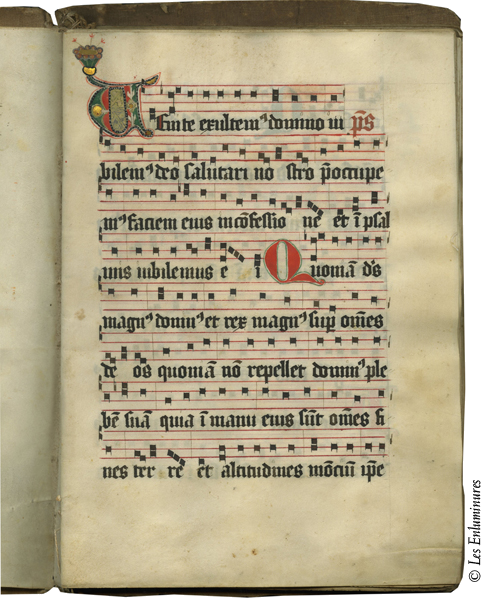 VEnite exultem⁹ domino iu p̄s
bilem⁹ deo salutari no stro p̄occupe
m⁹ faciem eius in cōfessio ne et ī psal
mis iubilemus e i Quoniā d̄s
magn⁹ domin⁹ et rex magn⁹ sup̄ om̄es
de os quoniam nō repellet domin⁹ ple
bē suā quia ī manu eius sūt om̄es fi
nes ter re et altitudines mōciū ip̄e
© Les Enluminures